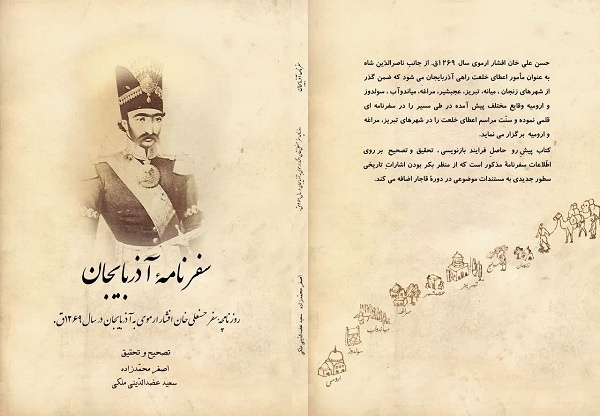 سفرنامهٔ آذربایجان
روزنامچه سفر حسنعلی خان افشار ارموی به آذربایجان در سال ۱۲۶۹ق.
تصحیح و تحقیق
اصغر محمدزاده
سعید عضدالدینی ملکی
سفرنامهٔ آذربایجان
اصغر محمدزاده سعید عضدالدینی ملکی
حسن علی خان افشار ارموی سال ۱۲۶۹ق. از جانب ناصرالدین شاه
به عنوان مأمور اعطای خلعت راهی آذربایجان می شود که ضمن گذر
از شهرهای زنجان ، میانه، تبریز، عجبشیر، مراغه، میاندوآب ، سولدوز
و ارومیه وقایع مختلف پیش آمده در طی مسیر را در سفرنامه ای
قلمی نموده و سنّت مراسم اعطای خلعت را در شهرهای تبریز، مراغه
و ارومیه برگزار می نماید.
کتاب پیش رو حاصل فرایند بازنویسی ، تحقیق و تصحیح بر روی
اطّلاعات سفرنامهٔ مذکور است که از منظر بکر بودن اشارات تاریخی
سطور جدیدی به مستندات موضوعی در دورهٔ قاجار اضافه می کند.
زنجان
میانج
تبریز
عجبشیر
مراغه
میاندوآب
سولدوز
ارومی